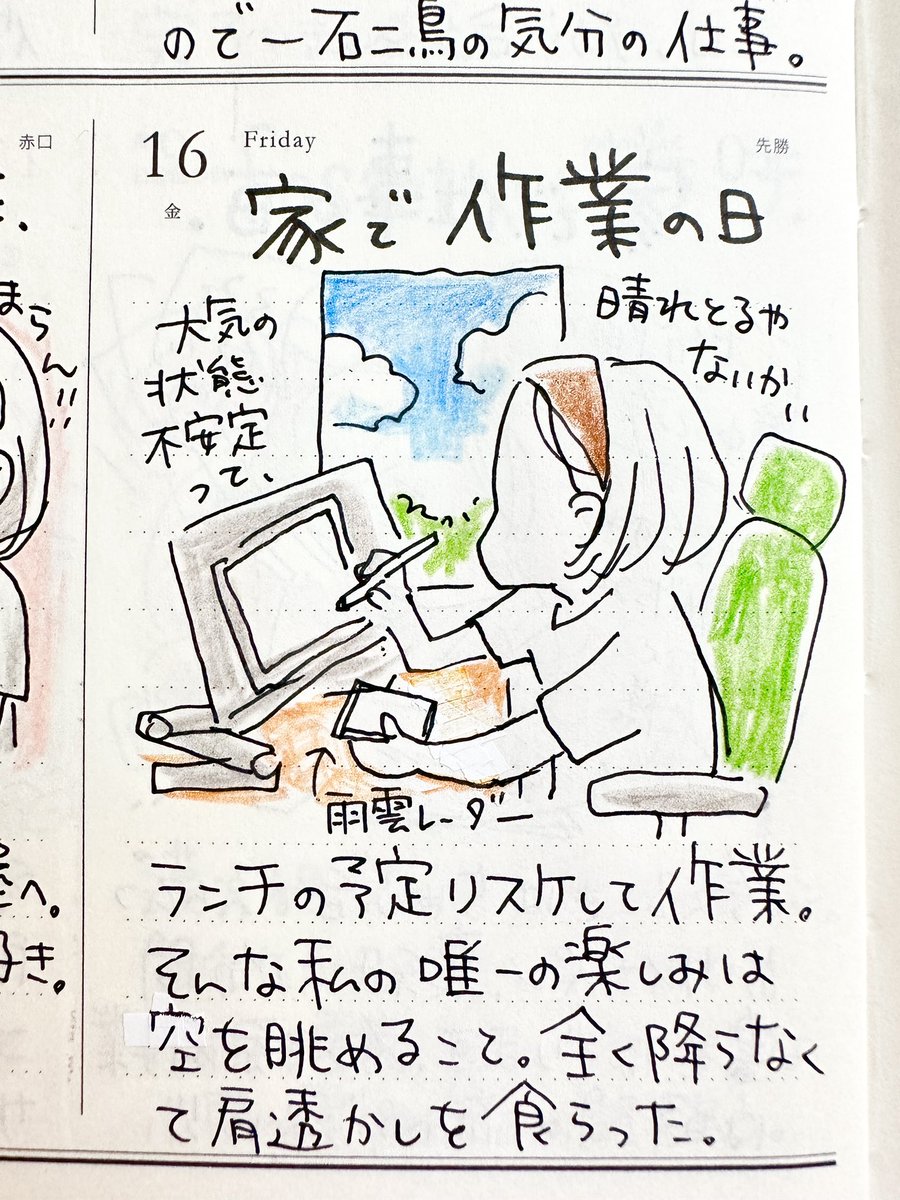 ので一石二鳥の気分の仕事。
赤口
16 Friday 先勝
金
家で作業の日
まらん!!
大気の
状態
不安定
って、
晴れとるや
ないか!!
↑
雨雲レーダー
ランチの予定リスケして作業。
そんな私の唯一の楽しみは
空を眺めること。全く降らなく
て肩透かしを食らった。
へ。
好き。